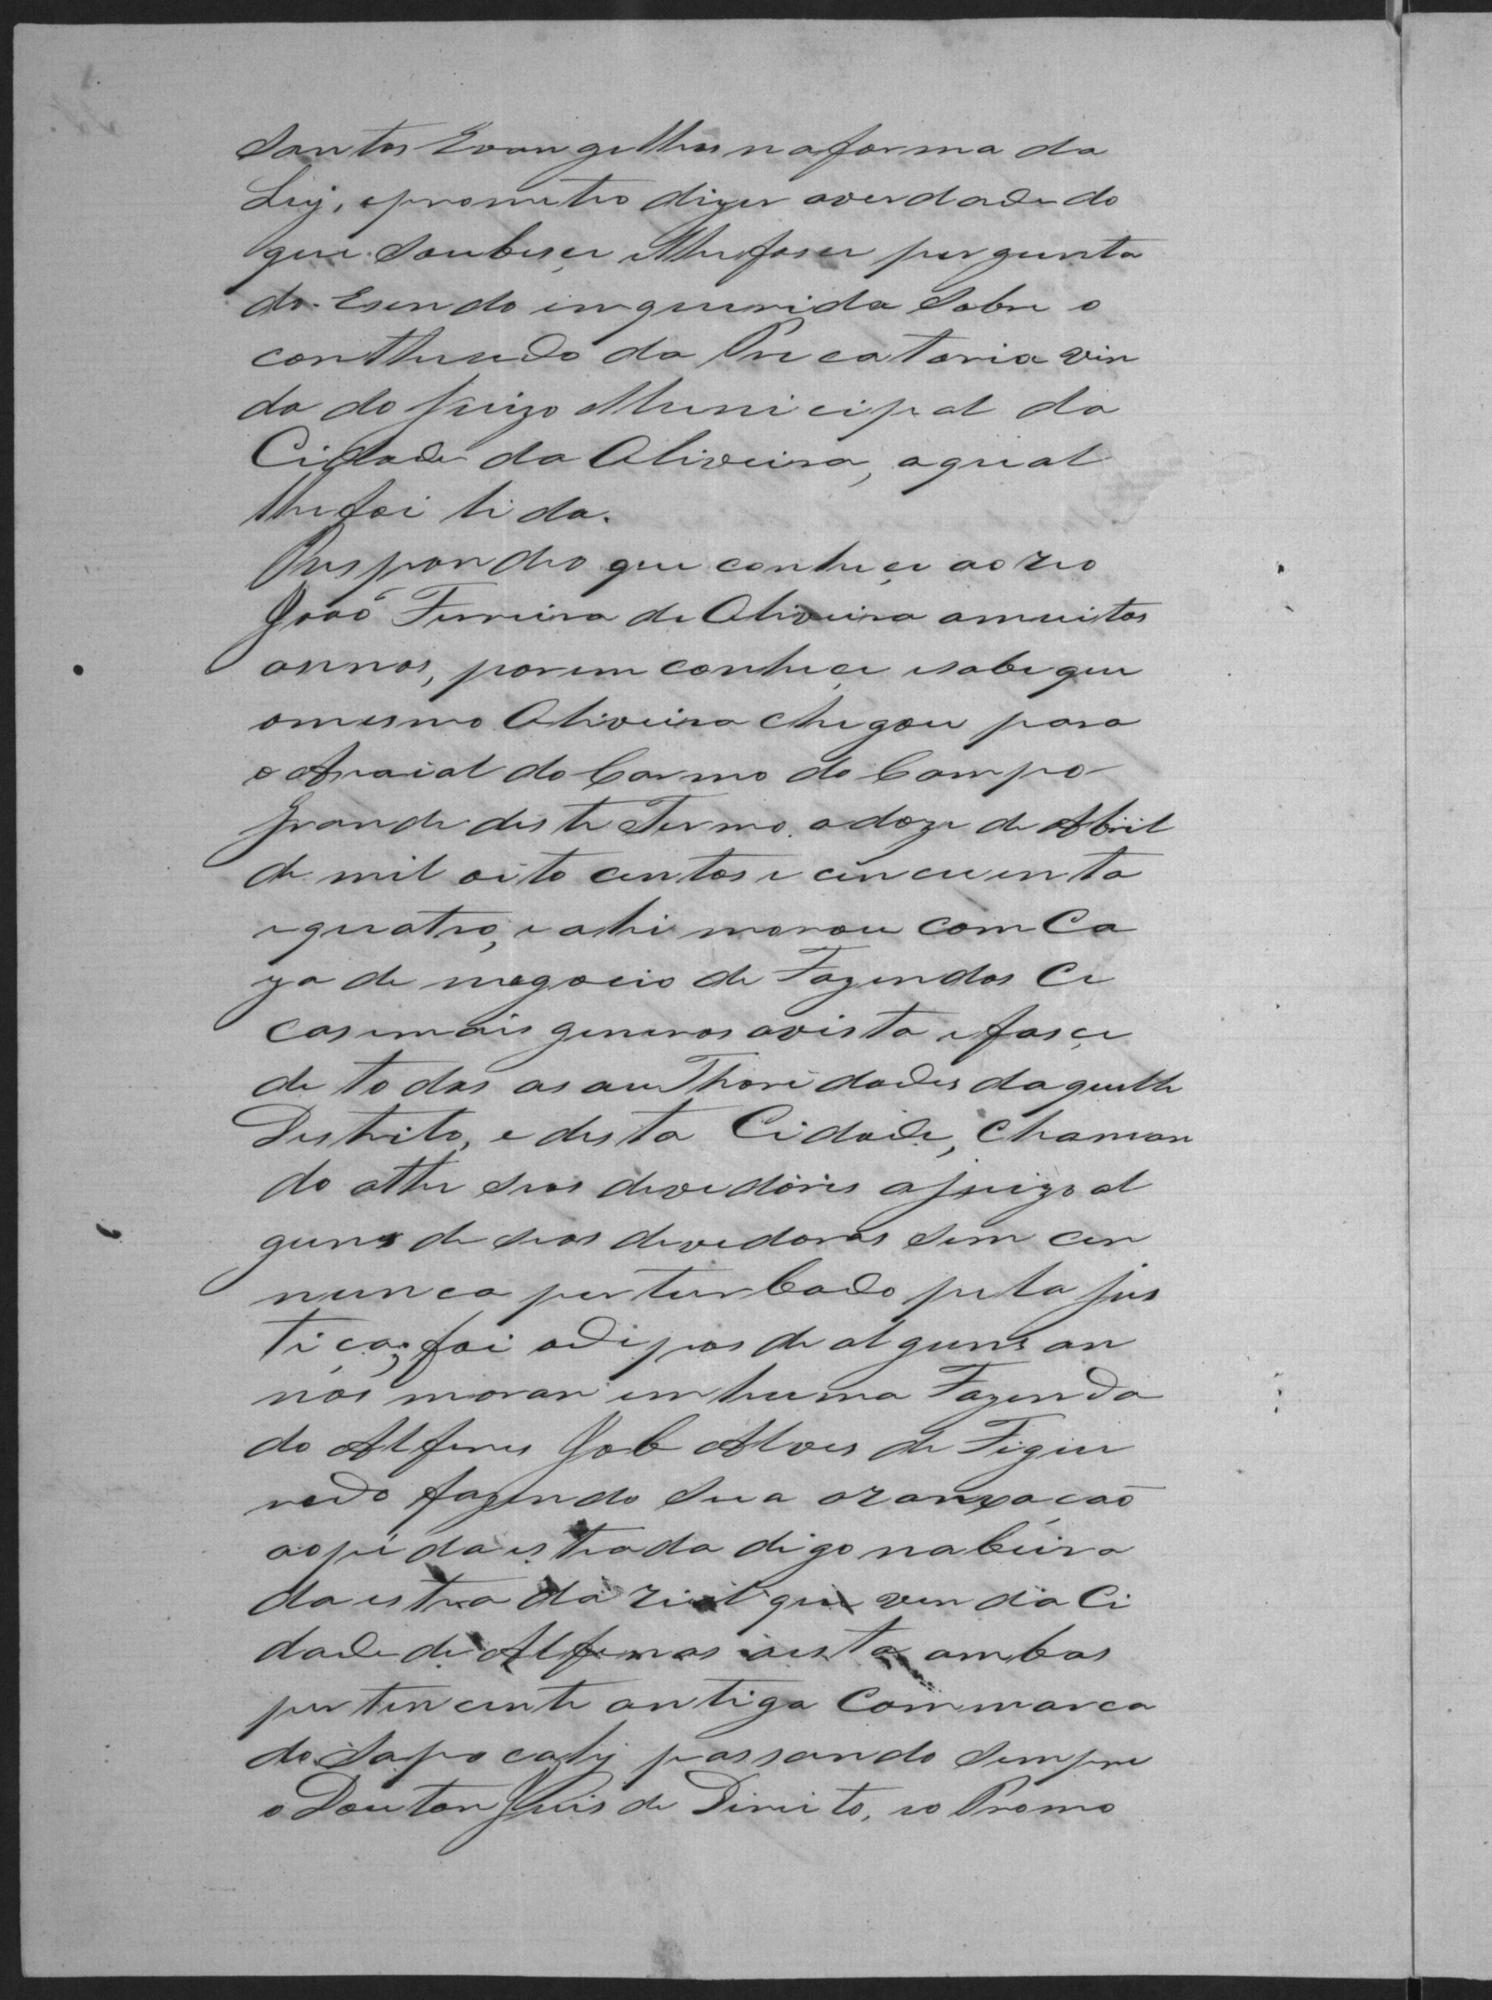 Santos Evangelhos na forma da
Ley, e prometeo dizer a verdade do
que soubeçe e lhe fose pergunta
do. E sendo inquirida sobre o
contheudo da Precatoria vin
da do Juizo Municipal da
Cidade da Oliveira, a qual
lhe foi lida.
Respondeo que conheçe ao reo
João Ferreira de Oliveira a muitos
annos, porem conheçe e sabe que
o mesmo Oliveira chegou para
o Araial do Carmo do Campo
grande deste Termo a doze de Abril
de mil oito centos e cincuenta
e quatro, e ahi morou com Ca
za de negocio de Fazendas Ce
cas e mais generos a vista e façe
de todas as authoridades daquelle
Destrito, e desta Cidade, chaman
do athe seos devedores a juizo al
guns de seos devedores sem cer
nunca perturbado pela jus
tiça; foi adepois de alguns an
nos morar em huma Fazenda
do Alferes Job Alves de Figue
redo fazendo sua aranxação
ao pé da estrada digo na beira
da estrada rial que vem da Ci
dade de Alfenas a esta ambas
pertencente antiga Commarca
do Sapocahy passando sempre
o Doutor Juis de Direito, e o Promo